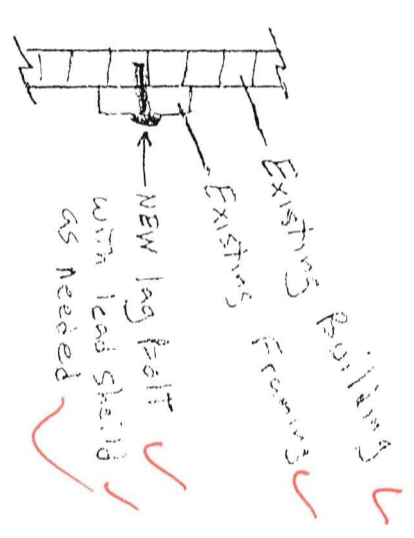 Existing Building
Existing Framing
NEW lag bolt
with lead sheild
as needed